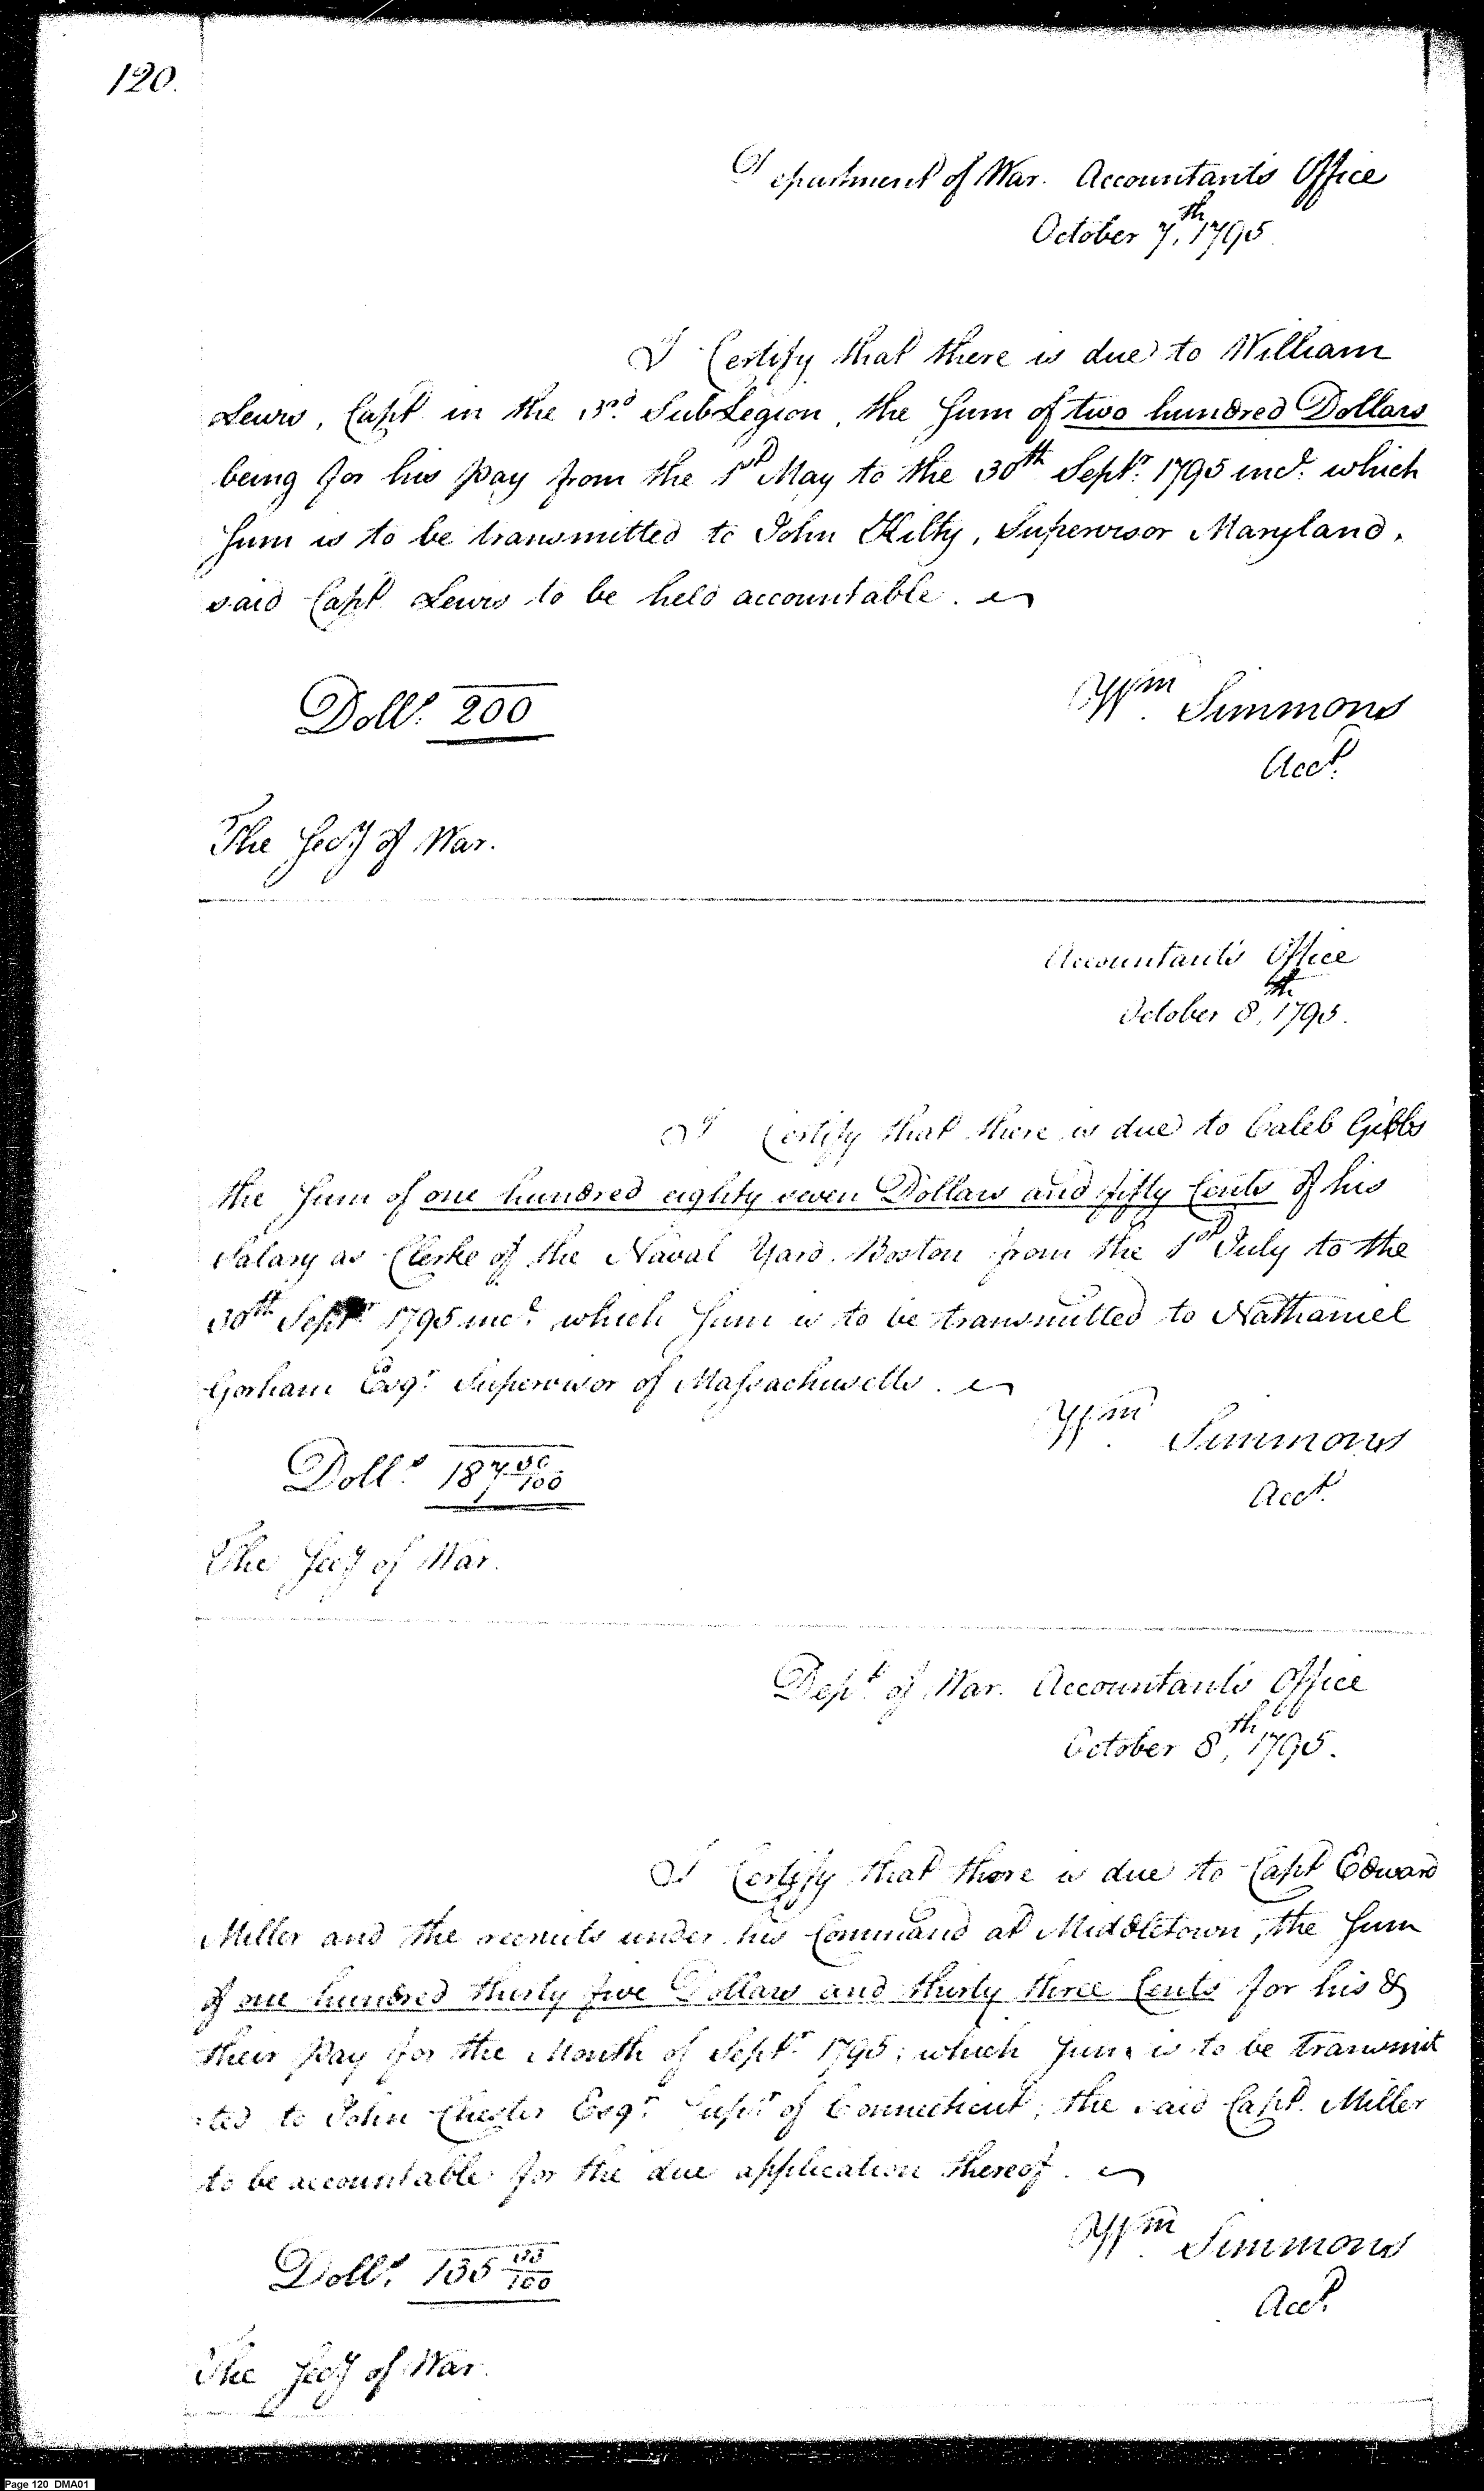 120.
Department of War. Accountants Office
October 7,th 1795
I Certify that there is due to William
Lewis, Capt in the 3rd SubLegion, the Sum of two hundred Dollars
being for his pay from the 1st May to the 30th Septr. 1795 incl. which
Sum is to be transmitted to John Kilty, Supervisor Maryland,
said Capt Lewis to be held accountable.
Dolls. 200
Wm. Simmons
Acct.
The Secy of War.
Accountants Office
October 8,th 1795.
I Certify that there is due to Caleb Gibbs
the Sum of one hundred eighty seven Dollars and fifty Cents of his
Salary as Clerke of the Naval Yard. Boston from the 1st July to the
30th Septr 1795 incl. which Sum is to be transmitted to Nathaniel
Gorham Esqr. Supervisor of Massachusetts.
Wm. Simmons
Dolls. 187 50/100
Acct.
The Secy of War.
Dept of War. Accountants Office
October 8,th 1795.
I Certify that there is due to Capt Edward
Miller and the recruits under his Command at Middletown, the Sum
of one hundred thirty five Dollars and thirty three Cents for his &
their Pay for the Month of Septr 1795; which Sum is to be transmit
:ted to John Chester Esqr. Supr of Connecticut; the said Capt. Miller
to be accountable for the due application thereof.
Wm. Simmons
Dolls. 135 33/100
Acct.
The Secy of War.
Page 120 DMA01